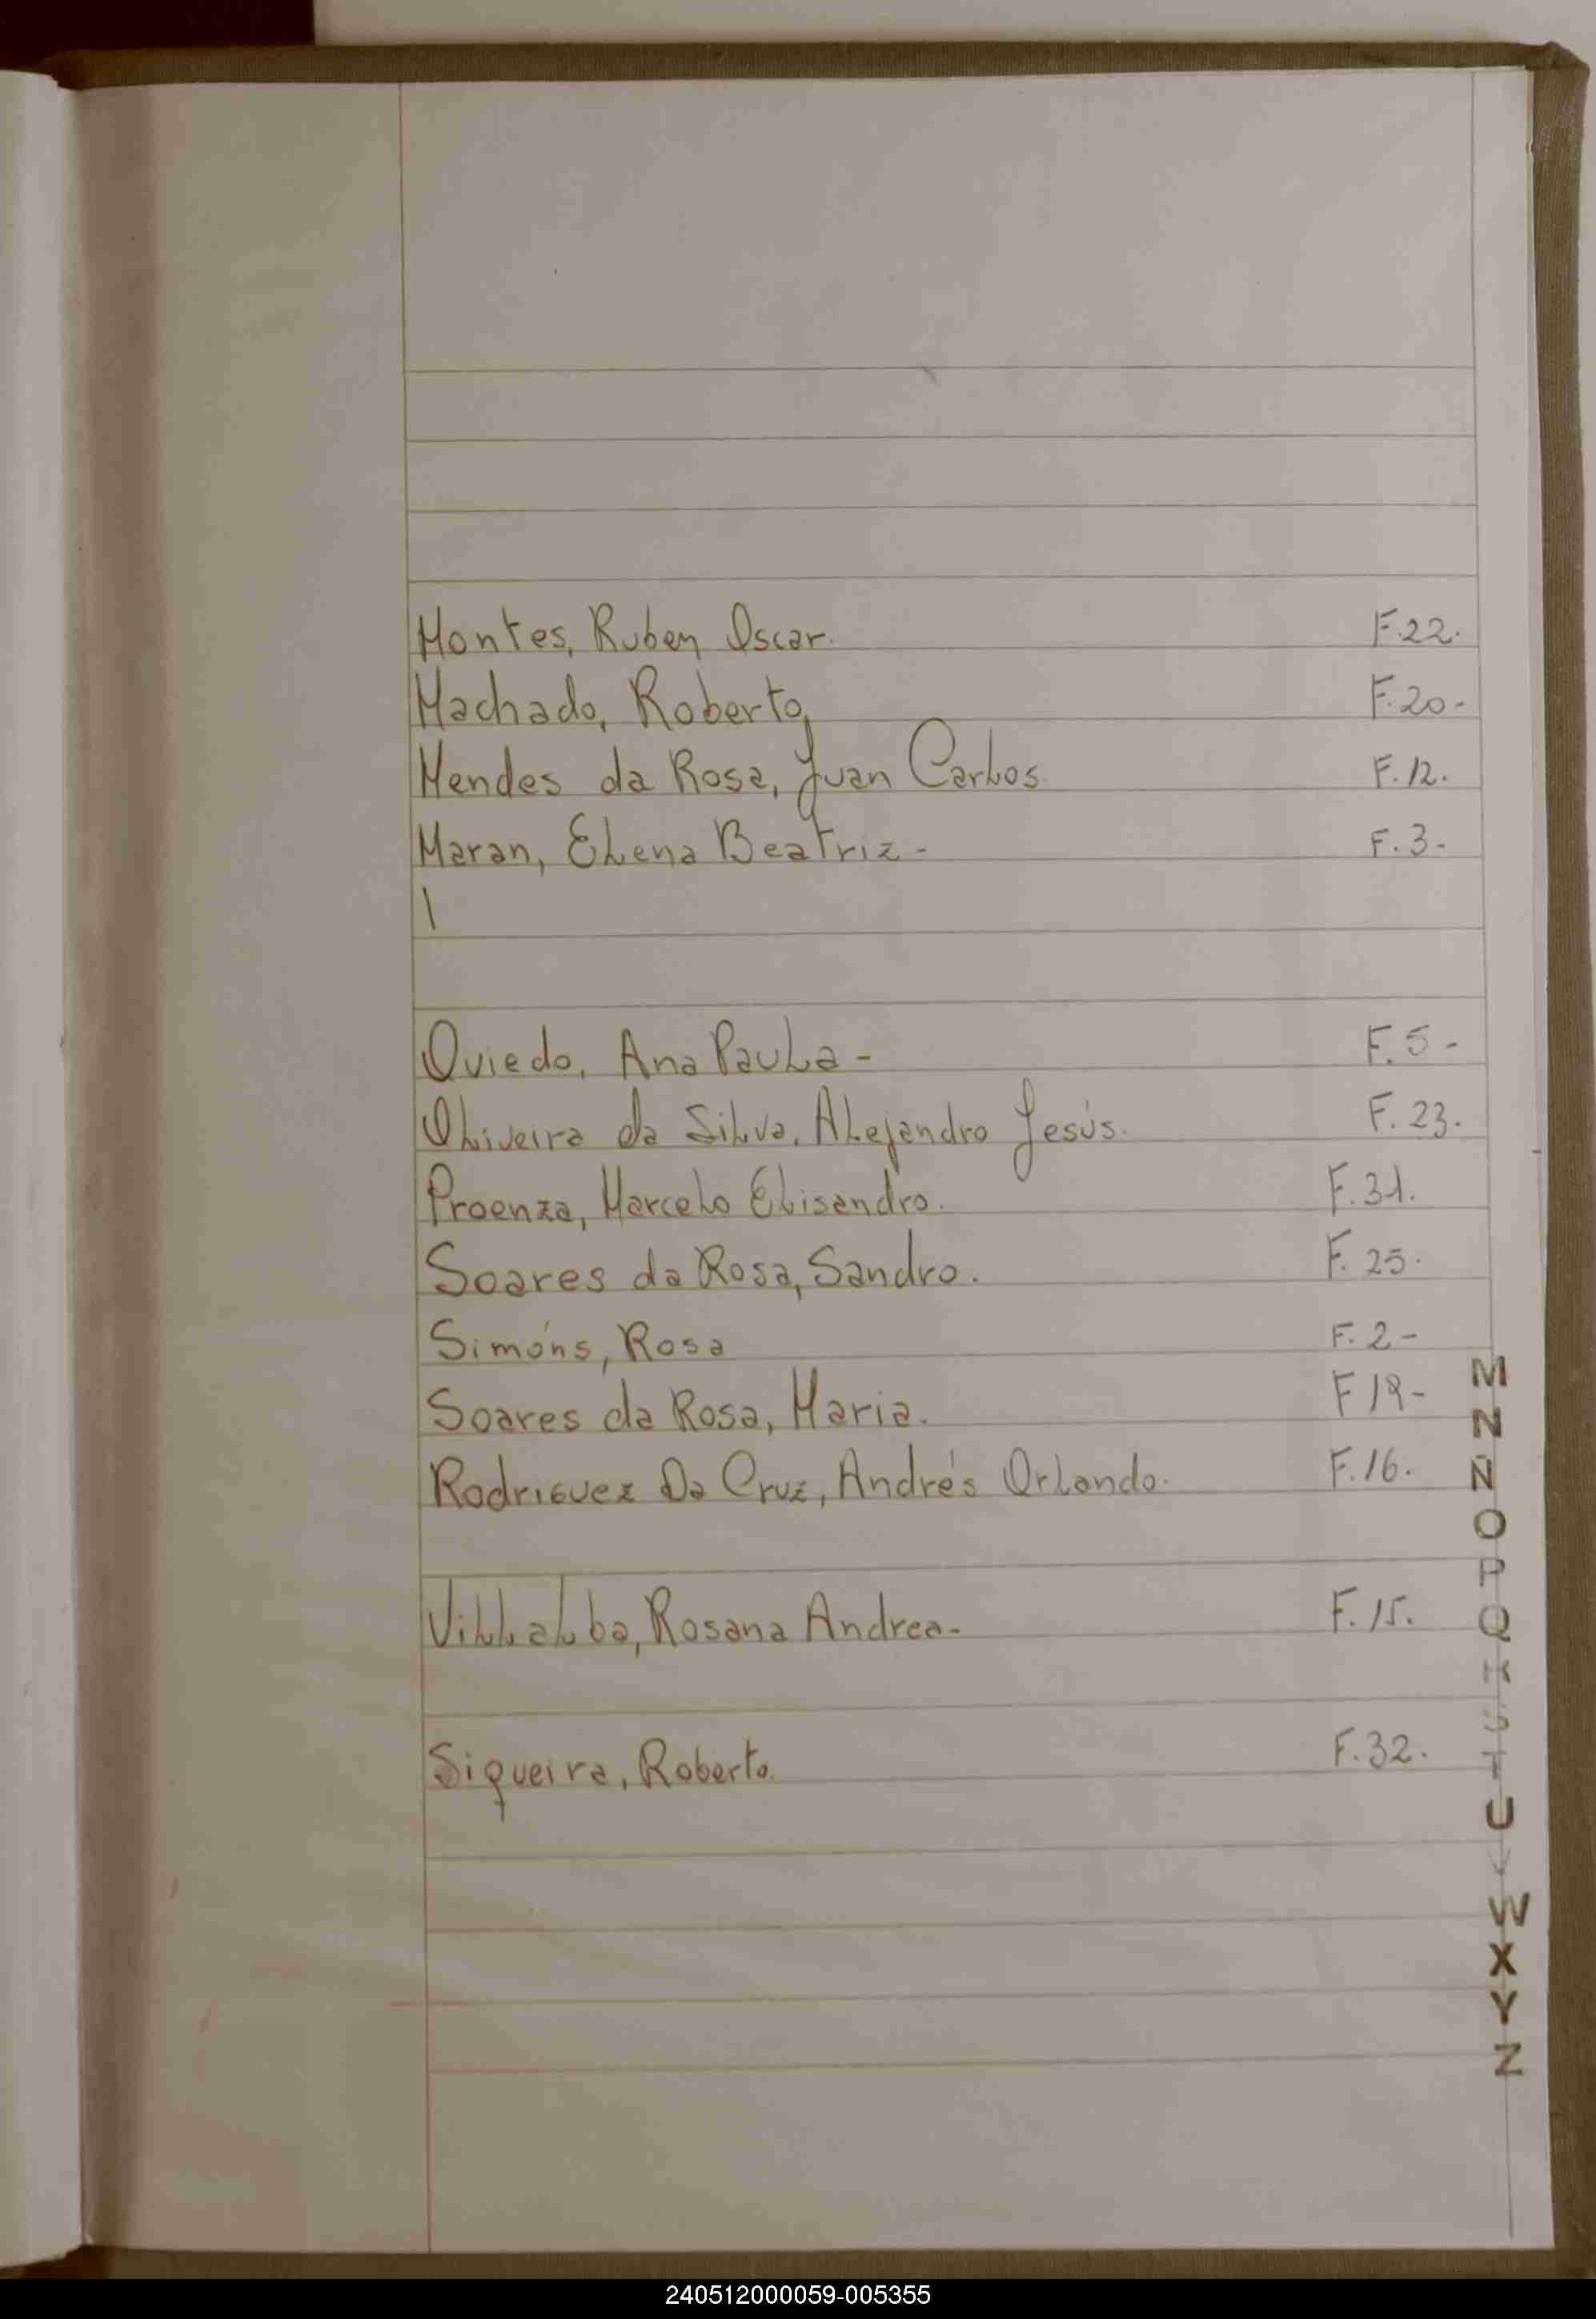 Montes, Ruben Oscar. F.22.
Machado, Roberto, F.20-
Mendes da Rosa, Juan Carlos F.12.
Maran, Elena Beatriz - F.3-
Oviedo, Ana Paula - F.5-
Oliveira da Silva, Alejandro Jesús. F.23.
Proenza, Marcelo Elisandro. F.31.
Soares da Rosa, Sandro. F.25.
Simóns, Rosa F.2-
Soares da Rosa, Maria. F19-
Rodriguez Da Cruz, Andrés Orlando. F.16.
Villalba, Rosana Andrea- F.15.
Siqueira, Roberto. F.32.
M
N
Ñ
O
P
Q
R
S
T
U
V
W
X
Y
Z
240512000059-005355